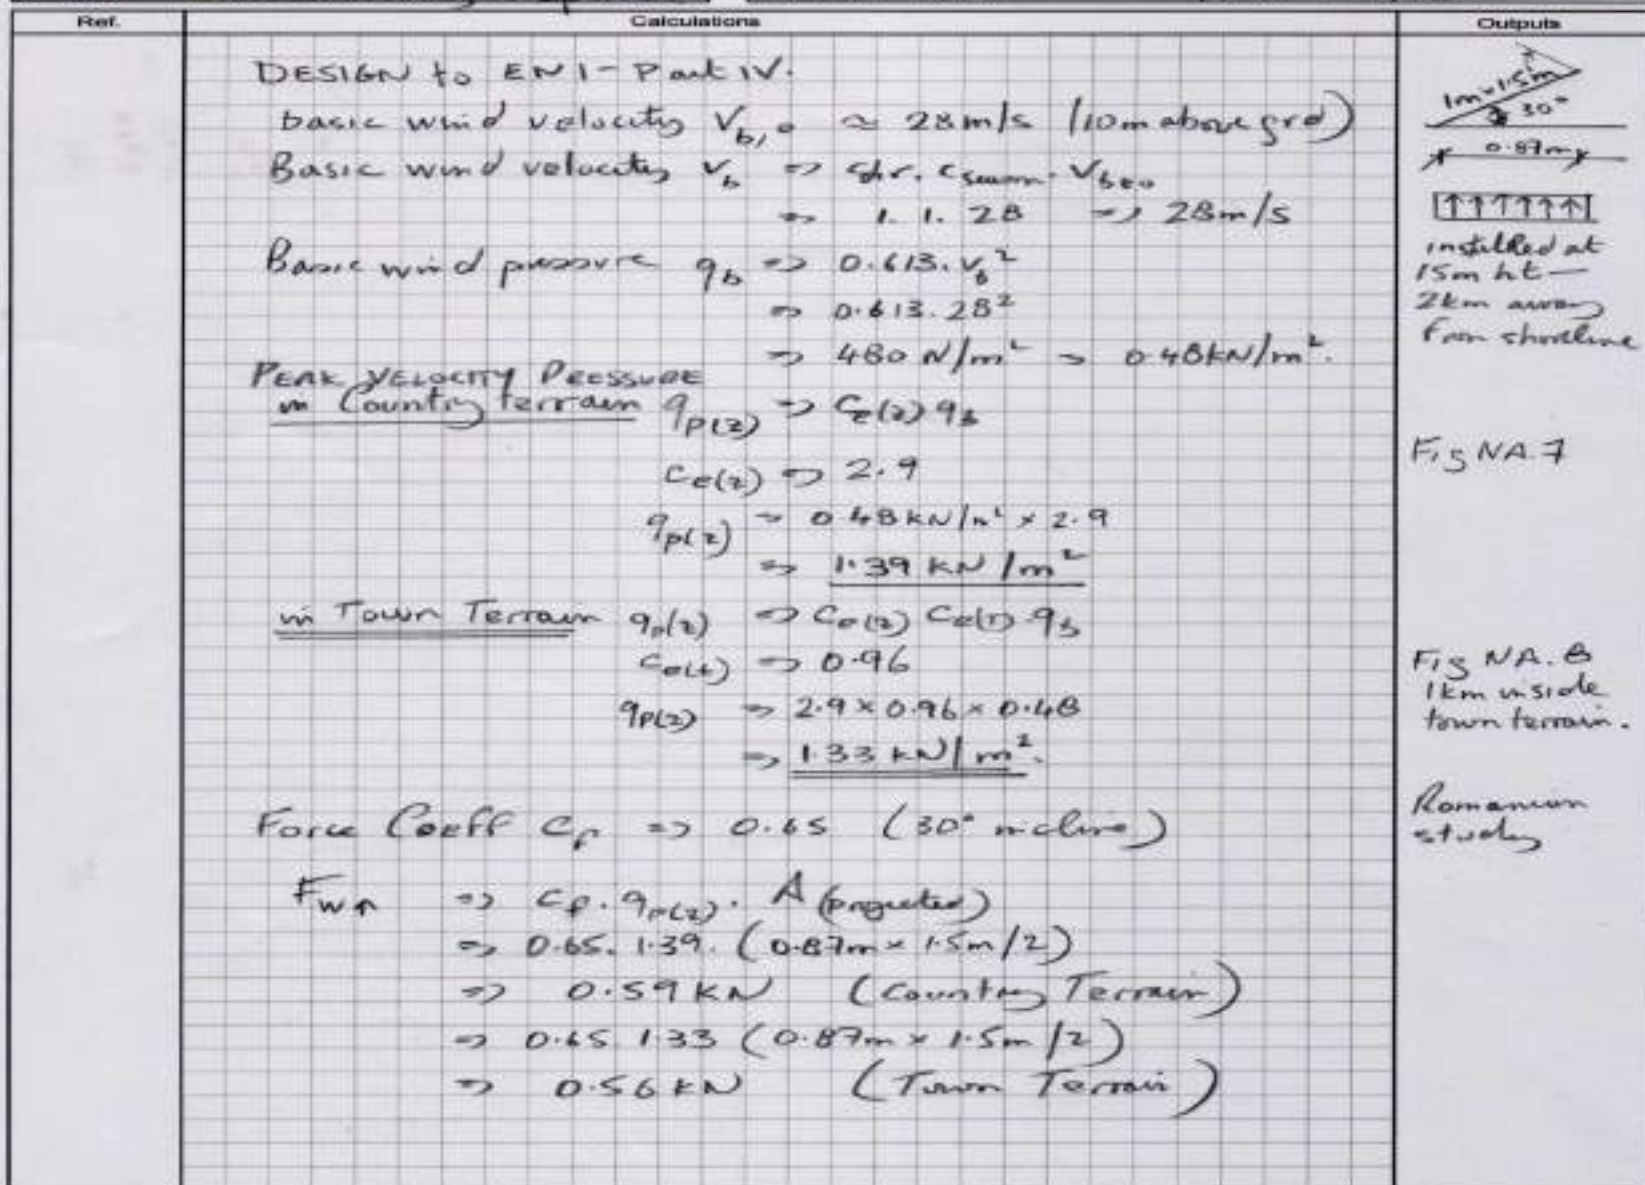 Ref.
Calculations
Outputs
DESIGN to EN1-Part IV.
basic wind velocity Vb,o ≈ 28m/s (10m above grd)
Basic wind velocity Vb => cdir. cseason. Vb,o
=> 1. 1. 28 => 28m/s
Basic wind pressure qb => 0.613. Vb²
=> 0.613. 28²
=> 480 N/m² => 0.48kN/m².
PEAK VELOCITY PRESSURE
in Country terrain qp(z) => Ce(z) qb
Ce(z) => 2.9
qp(z) => 0.48kN/m² × 2.9
=> 1.39 kN/m²
in Town Terrain qp(z) => Ce(z) Ce(T) qb
Ce(t) => 0.96
qp(z) => 2.9 × 0.96 × 0.48
=> 1.33 kN/m².
Force Coeff Cf => 0.65 (30° incline)
Fw↑ => Cf. qp(z). A (projected)
=> 0.65. 1.39. (0.87m × 1.5m/2)
=> 0.59 KN (Country Terrain)
=> 0.65. 1.33 (0.87m × 1.5m/2)
=> 0.56 kN (Town Terrain)
1m×1.5m
30°
0.87m
installed at
15m ht —
2km away
from shoreline
Fig NA.7
Fig NA.8
1km inside
town terrain.
Romanian
study